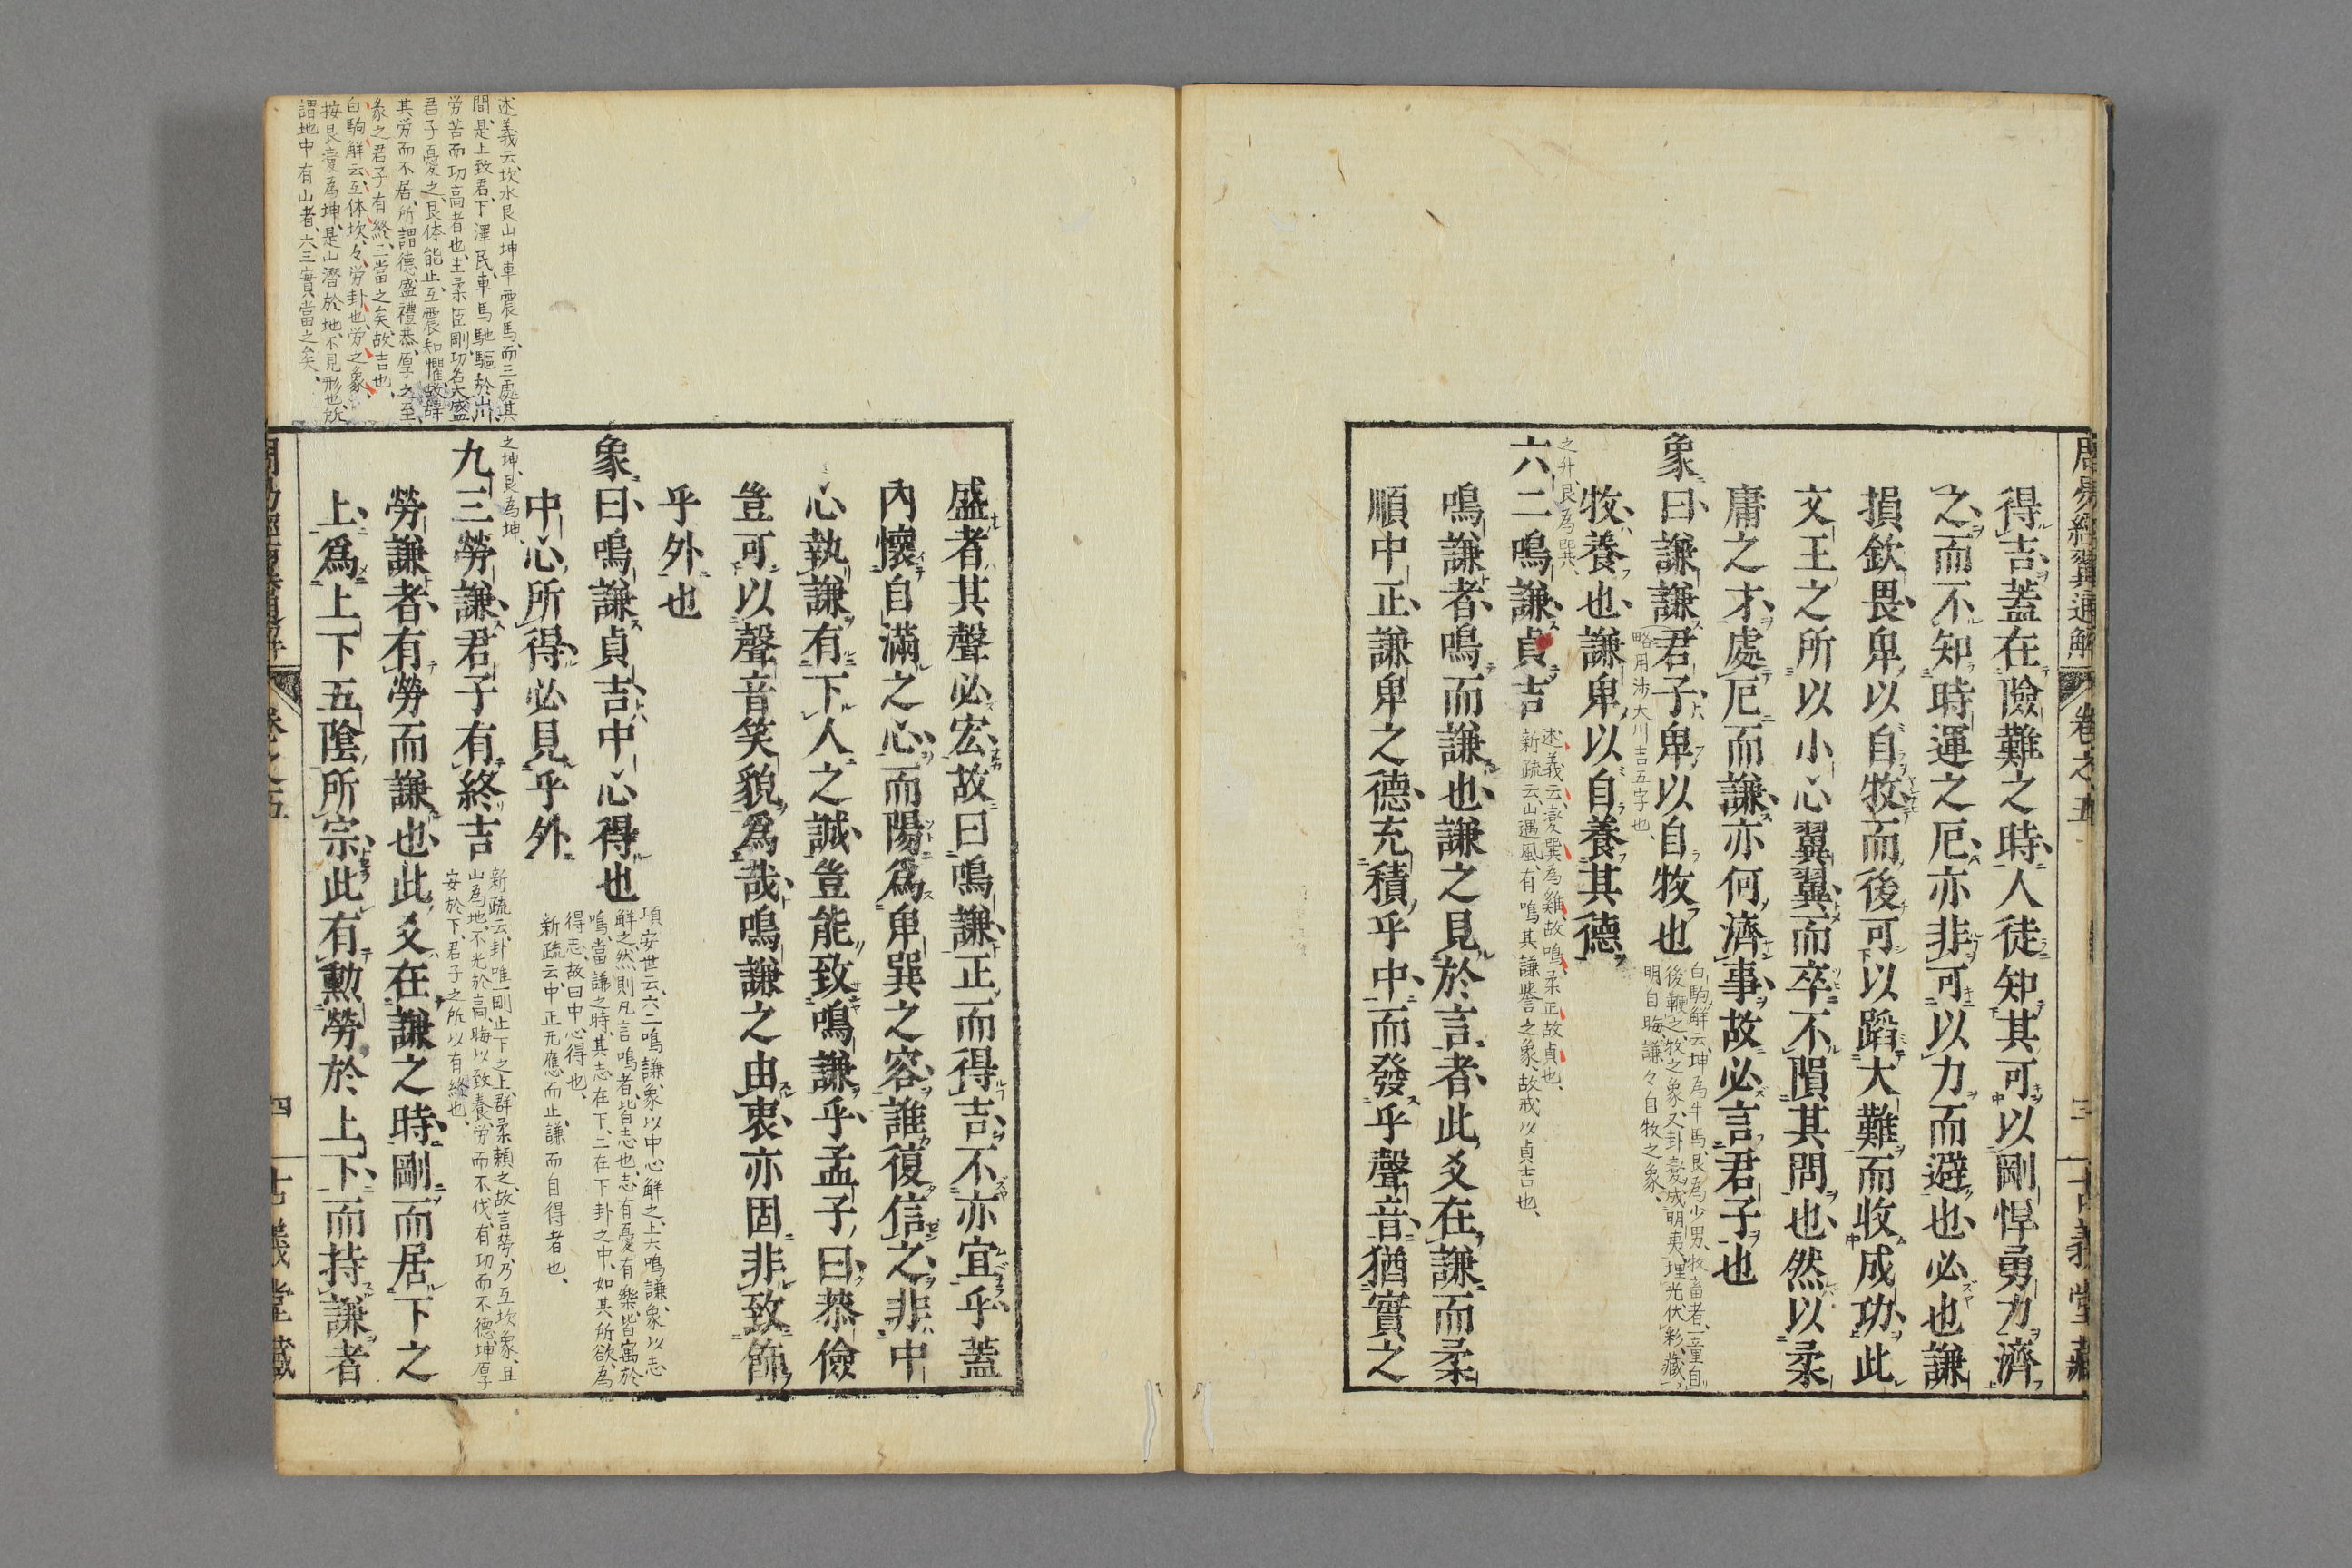 周易經翼通解 卷之五 三 古義堂藏
得吉蓋在險難之時人徒知其可以剛悍勇力濟
之而不知時運之厄亦非可以力而避也必也謙
損欽畏卑以自牧而後可以蹈大難而收成功此
文王之所以小心翼翼而卒不隕其問也然以柔
庸之才處厄而謙亦何濟事故必言君子也
象曰謙謙君子卑以自牧也
略用涉大川吉五字也
白駒解云坤為牛馬艮為少男牧畜者童自
後鞭之牧之象又卦変成明夷埋光伏彩藏
明自晦謙々自牧之象
牧養也謙卑以自養其德
之升艮為巽
六二鳴謙貞吉
述義云変巽為雞故鳴柔正故貞也
新疏云山遇風有鳴其謙誉之象故戒以貞吉也
鳴謙者鳴而謙也謙之見於言者此爻在謙而柔
順中正謙卑之德充積乎中而發乎聲音猶實之
盛者其聲必宏故曰鳴謙正而得吉不亦宜乎蓋
內懷自滿之心而陽爲卑巽之容誰復信之非中
心執謙有下人之誠豈能致鳴謙乎孟子曰恭儉
豈可以聲音笑貌爲哉鳴謙之由衷亦固非致飾
乎外也
象曰鳴謙貞吉中心得也
項安世云六二鳴謙象以中心解之上六鳴謙象以志
解之然則凡言鳴者皆志也志有憂有樂皆寓於
鳴當謙之時其志在下二在下卦之中如其所欲為
得志故曰中心得也
新疏云中正无應而止謙而自得者也
中心所得必見乎外
之坤艮為坤
九三勞謙君子有終吉
新疏云卦唯一剛止下之上群柔賴之故言勞乃互坎象且
山為地不光於高晦以致養労而不伐有功而不德坤厚
安於下君子之所以有終也
勞謙者有勞而謙也此爻在謙之時剛而居下之
上爲上下五陰所宗此有勳勞於上下而持謙者
述義云坎水艮山坤車震馬而三處其
間是上致君下澤民車馬馳驅於山川
労苦而功高者也主柔臣剛功名大盛
君子憂之艮体能止互震知懼故辞
其労而不居所謂德盛禮恭厚之至
象之君子有終三當之矣故吉也
白駒解云互体坎々労卦也労之象
按艮変為坤是山潜於地不見形也所
謂地中有山者六三實當之矣
周易經翼通解 卷之五 四 古義堂藏